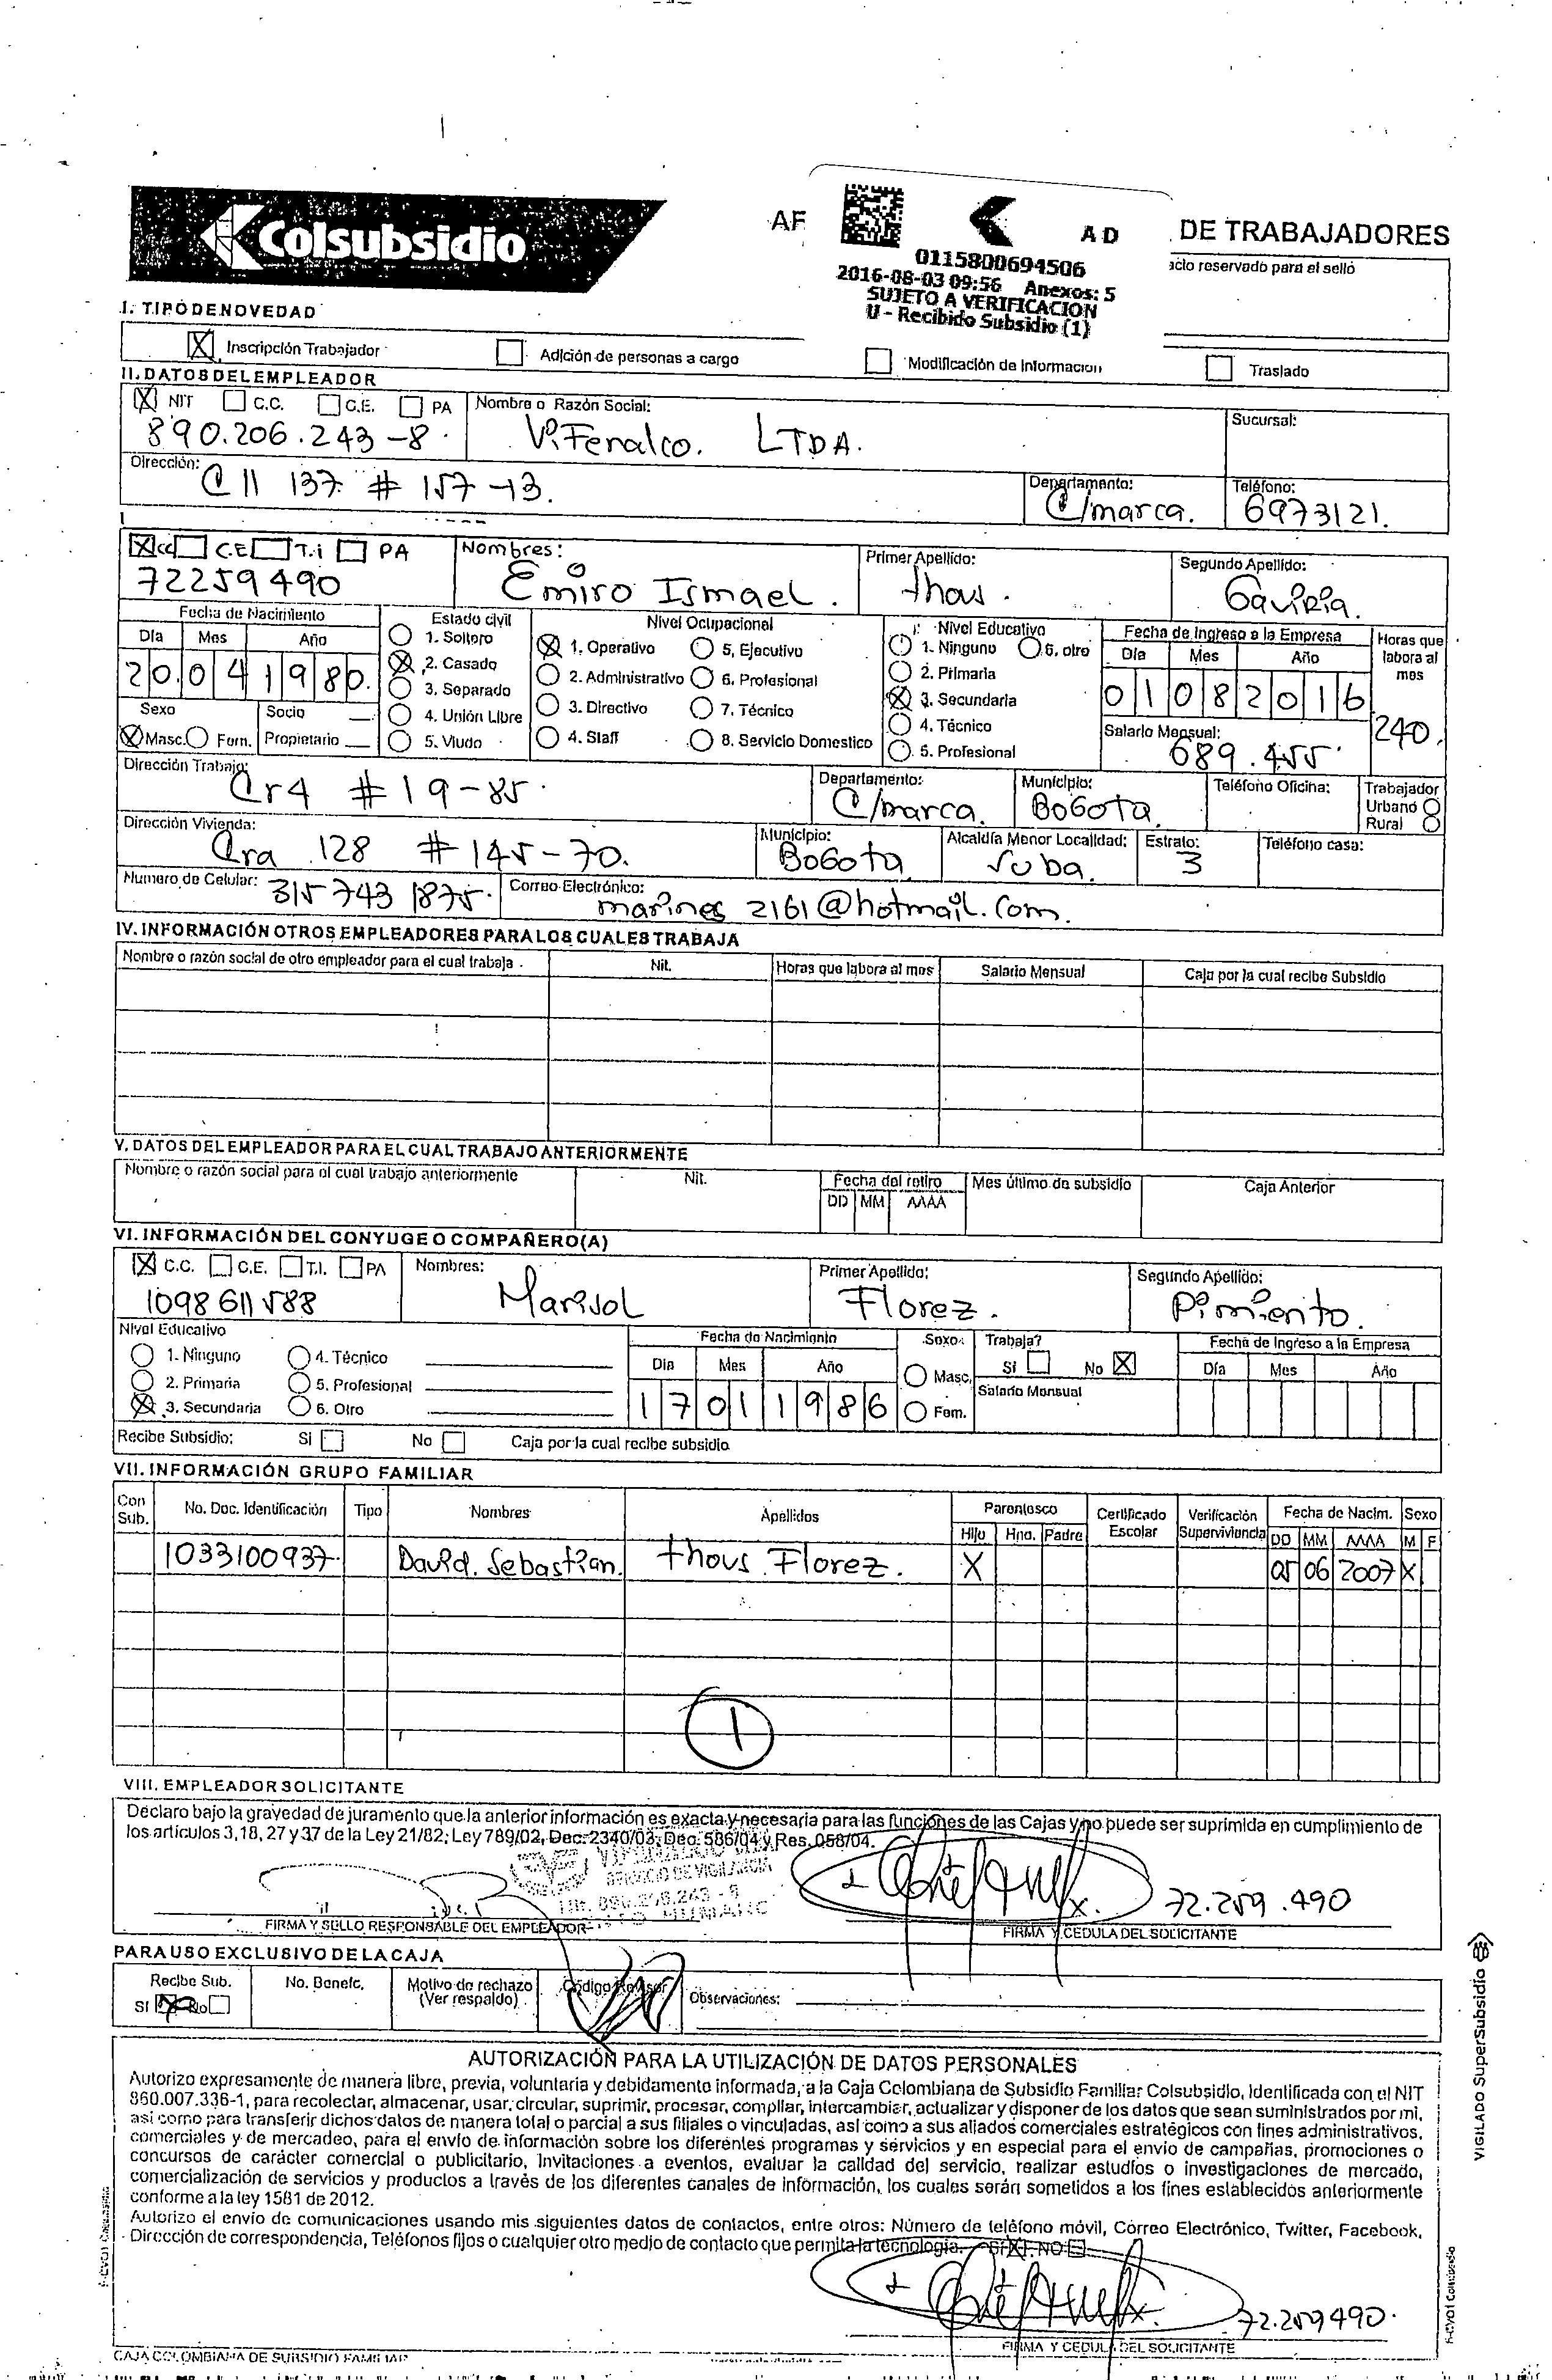 Colsubsidio
AF AD DE TRABAJADORES
0115800694506
2016-08-03 09:56 Anexos: 5
SUJETO A VERIFICACION
U - Recibido Subsidio (1)
reservado para el sello
I. TIPO DE NOVEDAD
X Inscripción Trabajador Adición de personas a cargo Modificación de Informacion Traslado
II. DATOS DEL EMPLEADOR
X NIT C.C. C.E. PA Nombre o Razón Social: Sucursal:
890.206.243-8. Vifenalco. LTDA.
Dirección: Cll 137 # 157-13. Departamento: C/marca. Teléfono: 6973121.
X CC C.E T.i PA Nombres: Primer Apellido: Segundo Apellido:
72259490 Emiro Ismael. thous. Gaviria.
Fecha de Nacimiento Estado civil Nivel Ocupacional Nivel Educativo Fecha de Ingreso a la Empresa Horas que labora al mes
Día Mes Año 1. Soltero X 1. Operativo 5. Ejecutivo 1. Ninguno 6. otro Día Mes Año
20 04 1980. X 2. Casado 2. Administrativo 6. Profesional 2. Primaria 01 08 2016
3. Separado 3. Directivo 7. Técnico X 3. Secundaria 240.
Sexo Socio 4. Unión Libre 4. Staff 8. Servicio Domestico 4. Técnico Salario Mensual:
X Masc. Fem. Propietario 5. Viudo 5. Profesional 689.455.
Dirección Trabajo: Cr4 #19-85. Departamento: C/marca. Municipio: Bogota. Teléfono Oficina: Trabajador Urbano Rural
Dirección Vivienda: Cra 128 #145-70. Municipio: Bogota Alcaldía Menor Localidad: Suba. Estrato: 3 Teléfono casa:
Numero de Celular: 315 743 1875. Correo Electrónico: marines 2161@hotmail.com.
IV. INFORMACIÓN OTROS EMPLEADORES PARA LOS CUALES TRABAJA
Nombre o razón social de otro empleador para el cual trabaja Nit. Horas que labora al mes Salario Mensual Caja por la cual recibe Subsidio
V. DATOS DEL EMPLEADOR PARA EL CUAL TRABAJO ANTERIORMENTE
Nombre o razón social para el cual trabajo anteriormente Nit. Fecha del retiro Mes último de subsidio Caja Anterior
DD MM AAAA
VI. INFORMACIÓN DEL CONYUGE O COMPAÑERO(A)
X C.C. C.E. T.I. PA Nombres: Primer Apellido: Segundo Apellido:
1098611588 Marisol Florez. Pimiento.
Nivel Educativo Fecha de Nacimiento Sexo: Trabaja? Fecha de Ingreso a la Empresa
1. Ninguno 4. Técnico Día Mes Año Masc. Si No X Día Mes Año
2. Primaria 5. Profesional Salario Mensual
X 3. Secundaria 6. Otro 17 01 1986 Fem.
Recibe Subsidio: Si No Caja por la cual recibe subsidio
VII. INFORMACIÓN GRUPO FAMILIAR
Con Sub. No. Doc. Identificación Tipo Nombres Apellidos Parentesco Certificado Escolar Verificación Supervivencia Fecha de Nacim. Sexo
Hijo Hno. Padre DD MM AAAA M F
1033100937. David. Sebastian. thous Florez. X 05 06 2007 X
1
VIII. EMPLEADOR SOLICITANTE
Declaro bajo la gravedad de juramento que la anterior información es exacta y necesaria para las funciones de las Cajas y no puede ser suprimida en cumplimiento de
los artículos 3, 18, 27 y 37 de la Ley 21/82; Ley 789/02, Dec. 2340/03; Dec. 586/04 y Res. 058/04.
SERVICIO DE VIGILANCIA
72.259.490
FIRMA Y SELLO RESPONSABLE DEL EMPLEADOR FIRMA Y CEDULA DEL SOLICITANTE
PARA USO EXCLUSIVO DE LA CAJA
Recibe Sub. No. Benefc. Motivo de rechazo Código Revisor Observaciones:
SI No (Ver respaldo)
AUTORIZACIÓN PARA LA UTILIZACIÓN DE DATOS PERSONALES
Autorizo expresamente de manera libre, previa, voluntaria y debidamente informada, a la Caja Colombiana de Subsidio Familiar Colsubsidio, Identificada con el NIT
860.007.336-1, para recolectar, almacenar, usar, circular, suprimir, procesar, compilar, intercambiar, actualizar y disponer de los datos que sean suministrados por mi,
así como para transferir dichos datos de manera total o parcial a sus filiales o vinculadas, así como a sus aliados comerciales estratégicos con fines administrativos,
comerciales y de mercadeo, para el envío de información sobre los diferentes programas y servicios y en especial para el envio de campañas, promociones o
concursos de carácter comercial o publicitario, Invitaciones a eventos, evaluar la calidad del servicio, realizar estudios o investigaciones de mercado,
comercialización de servicios y productos a través de los diferentes canales de información, los cuales serán sometidos a los fines establecidos anteriormente
conforme a la ley 1581 de 2012.
Autorizo el envío de comunicaciones usando mis siguientes datos de contactos, entre otros: Número de teléfono móvil, Correo Electrónico, Twitter, Facebook,
Dirección de correspondencia, Teléfonos fijos o cualquier otro medio de contacto que permita la tecnología. SI X NO
72.259490.
FIRMA Y CEDULA DEL SOLICITANTE
CAJA COLOMBIANA DE SUBSIDIO FAMILIAR
VIGILADO SuperSubsidio